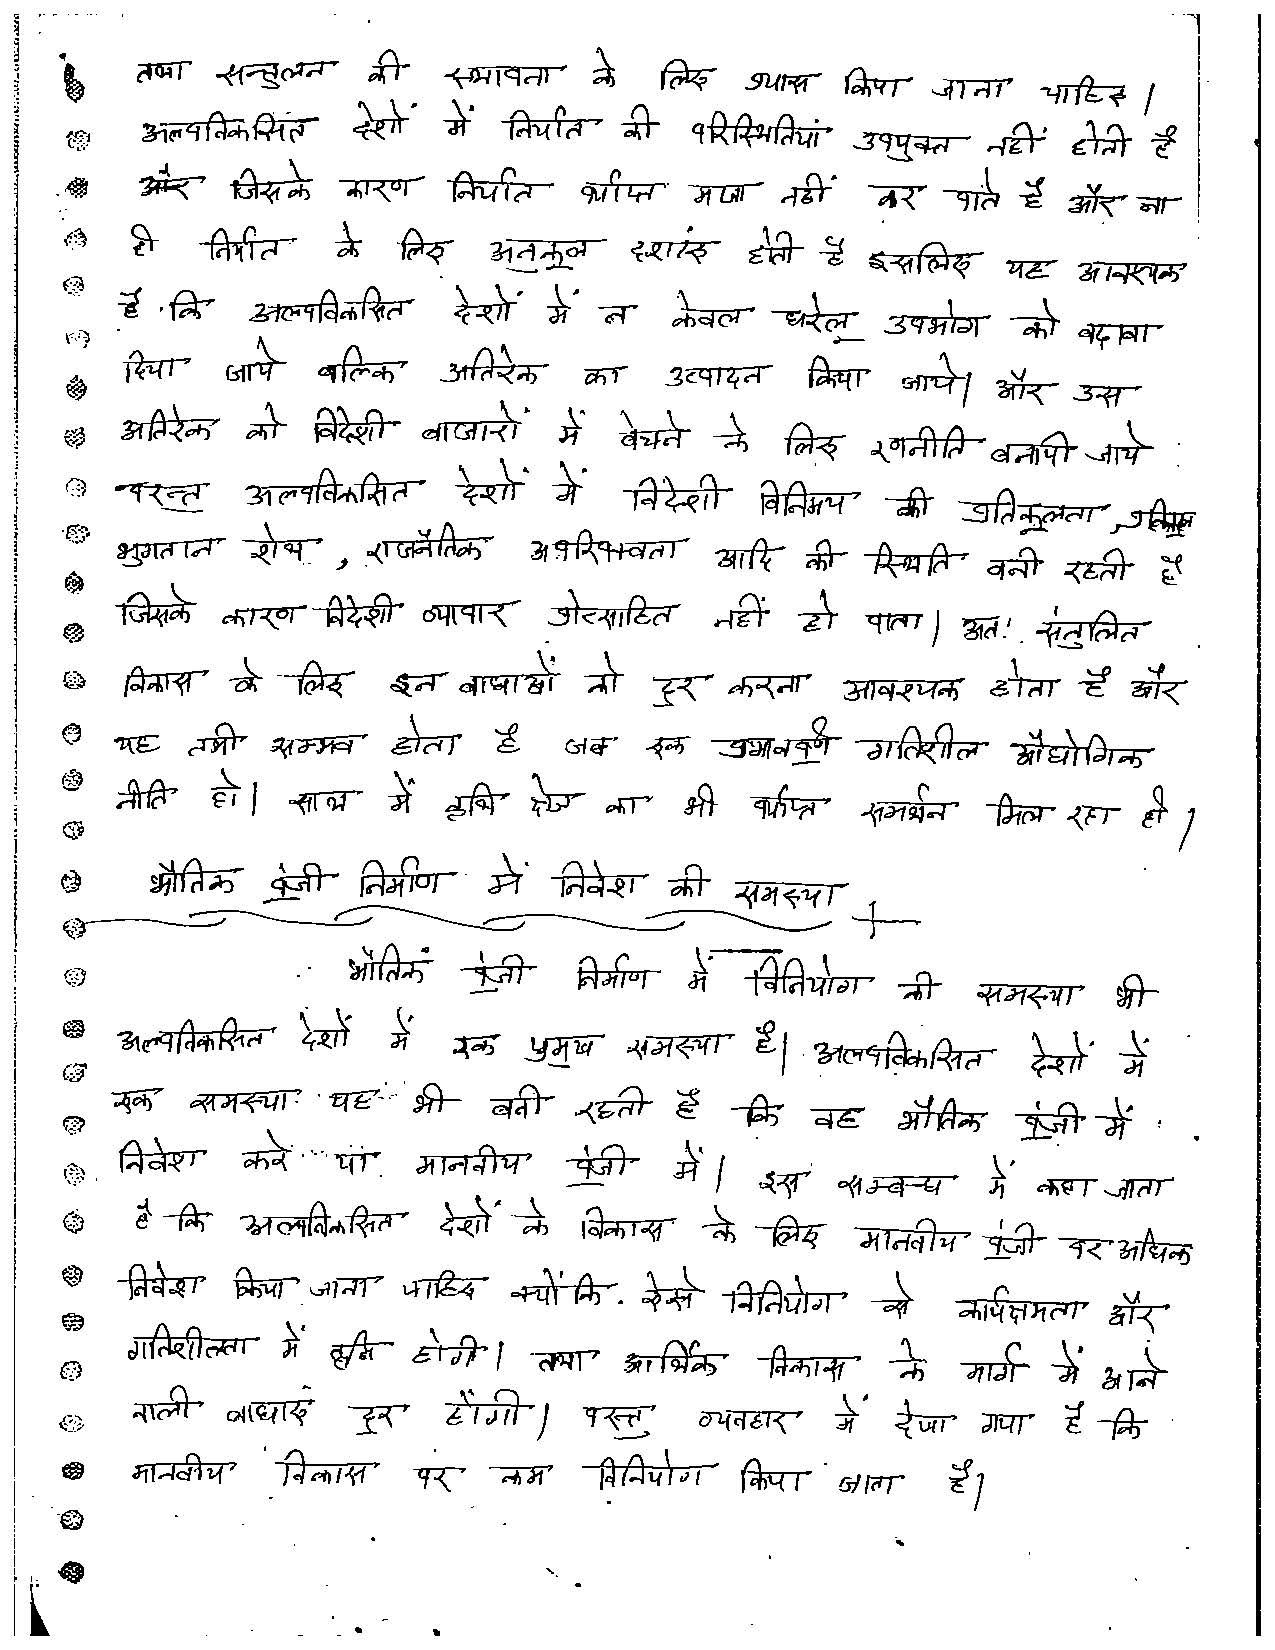 तथा सन्तुलन की स्थापना के लिए प्रयास किया जाना चाहिए।
अल्पविकसित देशों में निर्यात की परिस्थितियां उपयुक्त नहीं होती है
और जिसके कारण निर्यात पर्याप्त मात्रा नहीं कर पाते है और ना
ही निर्यात के लिए अनुकूल दशाएं होती है इसलिए यह आवश्यक
है कि अल्पविकसित देशों में न केवल घरेलू उपभोग को बढ़ावा
दिया जाये बल्कि अतिरेक का उत्पादन किया जाये। और उस
अतिरेक को विदेशी बाजारों में बेचने के लिए रणनीति बनायी जाये
परन्तु अल्पविकसित देशों में विदेशी विनिमय की प्रतिकूलता, प्रतिकूल
भुगतान शेष, राजनैतिक अपरिपक्वता आदि की स्थिति बनी रहती है
जिसके कारण विदेशी व्यापार प्रोत्साहित नहीं हो पाता। अतः संतुलित
विकास के लिए इन बाधाओं को दूर करना आवश्यक होता है और
यह तभी सम्भव होता है जब एक प्रभावपूर्ण गतिशील औद्योगिक
नीति हो। साथ में कृषि क्षेत्र का भी पर्याप्त समर्थन मिल रहा हो।
भौतिक पूंजी निर्माण में निवेश की समस्या
भौतिक पूंजी निर्माण में विनियोग की समस्या भी
अल्पविकसित देशों में एक प्रमुख समस्या है। अल्पविकसित देशों में
एक समस्या यह भी बनी रहती है कि वह भौतिक पूंजी में
निवेश करे या मानवीय पूंजी में। इस सम्बन्ध में कहा जाता
है कि अल्पविकसित देशों के विकास के लिए मानवीय पूंजी पर अधिक
निवेश किया जाना चाहिए क्यों कि ऐसे विनियोग से कार्यक्षमता और
गतिशीलता में वृद्धि होगी। तथा आर्थिक विकास के मार्ग में आने
वाली बाधाएं दूर होंगी। परन्तु व्यवहार में देखा गया है कि
मानवीय विकास पर कम विनियोग किया जाता है।